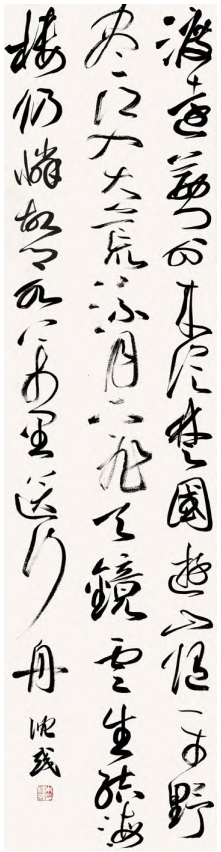 渡遠荊門外來從楚國遊山隨平野
盡江入大荒流月下飛天鏡雲生結海
樓仍憐故鄉水萬里送行舟